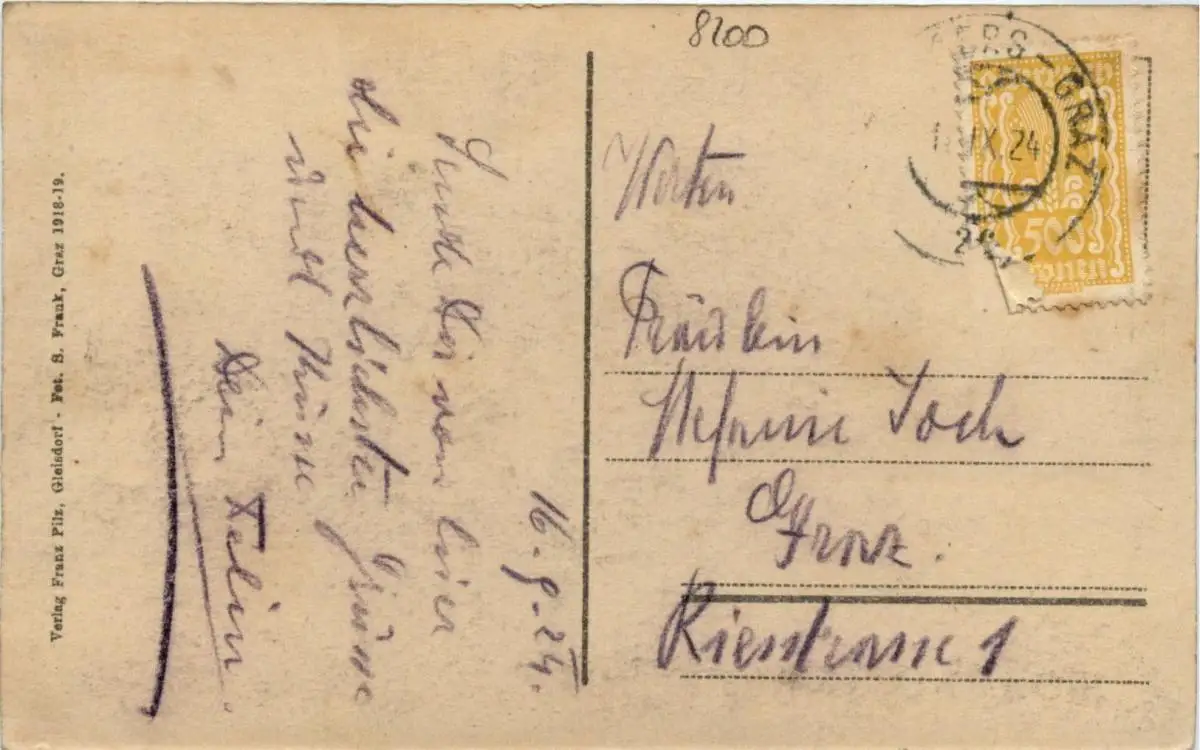 8200
GRAZ
IX 24
500
Kronen
16.9.24.
Sende Dir von hier
die herzlichsten Grüsse
und Küsse
Dein
Werten
Fräulein
Stefanie
Graz.
Riesstrasse 1
Verlag Franz Pilz, Gleisdorf - Fot. S. Frank, Graz 1918-19.